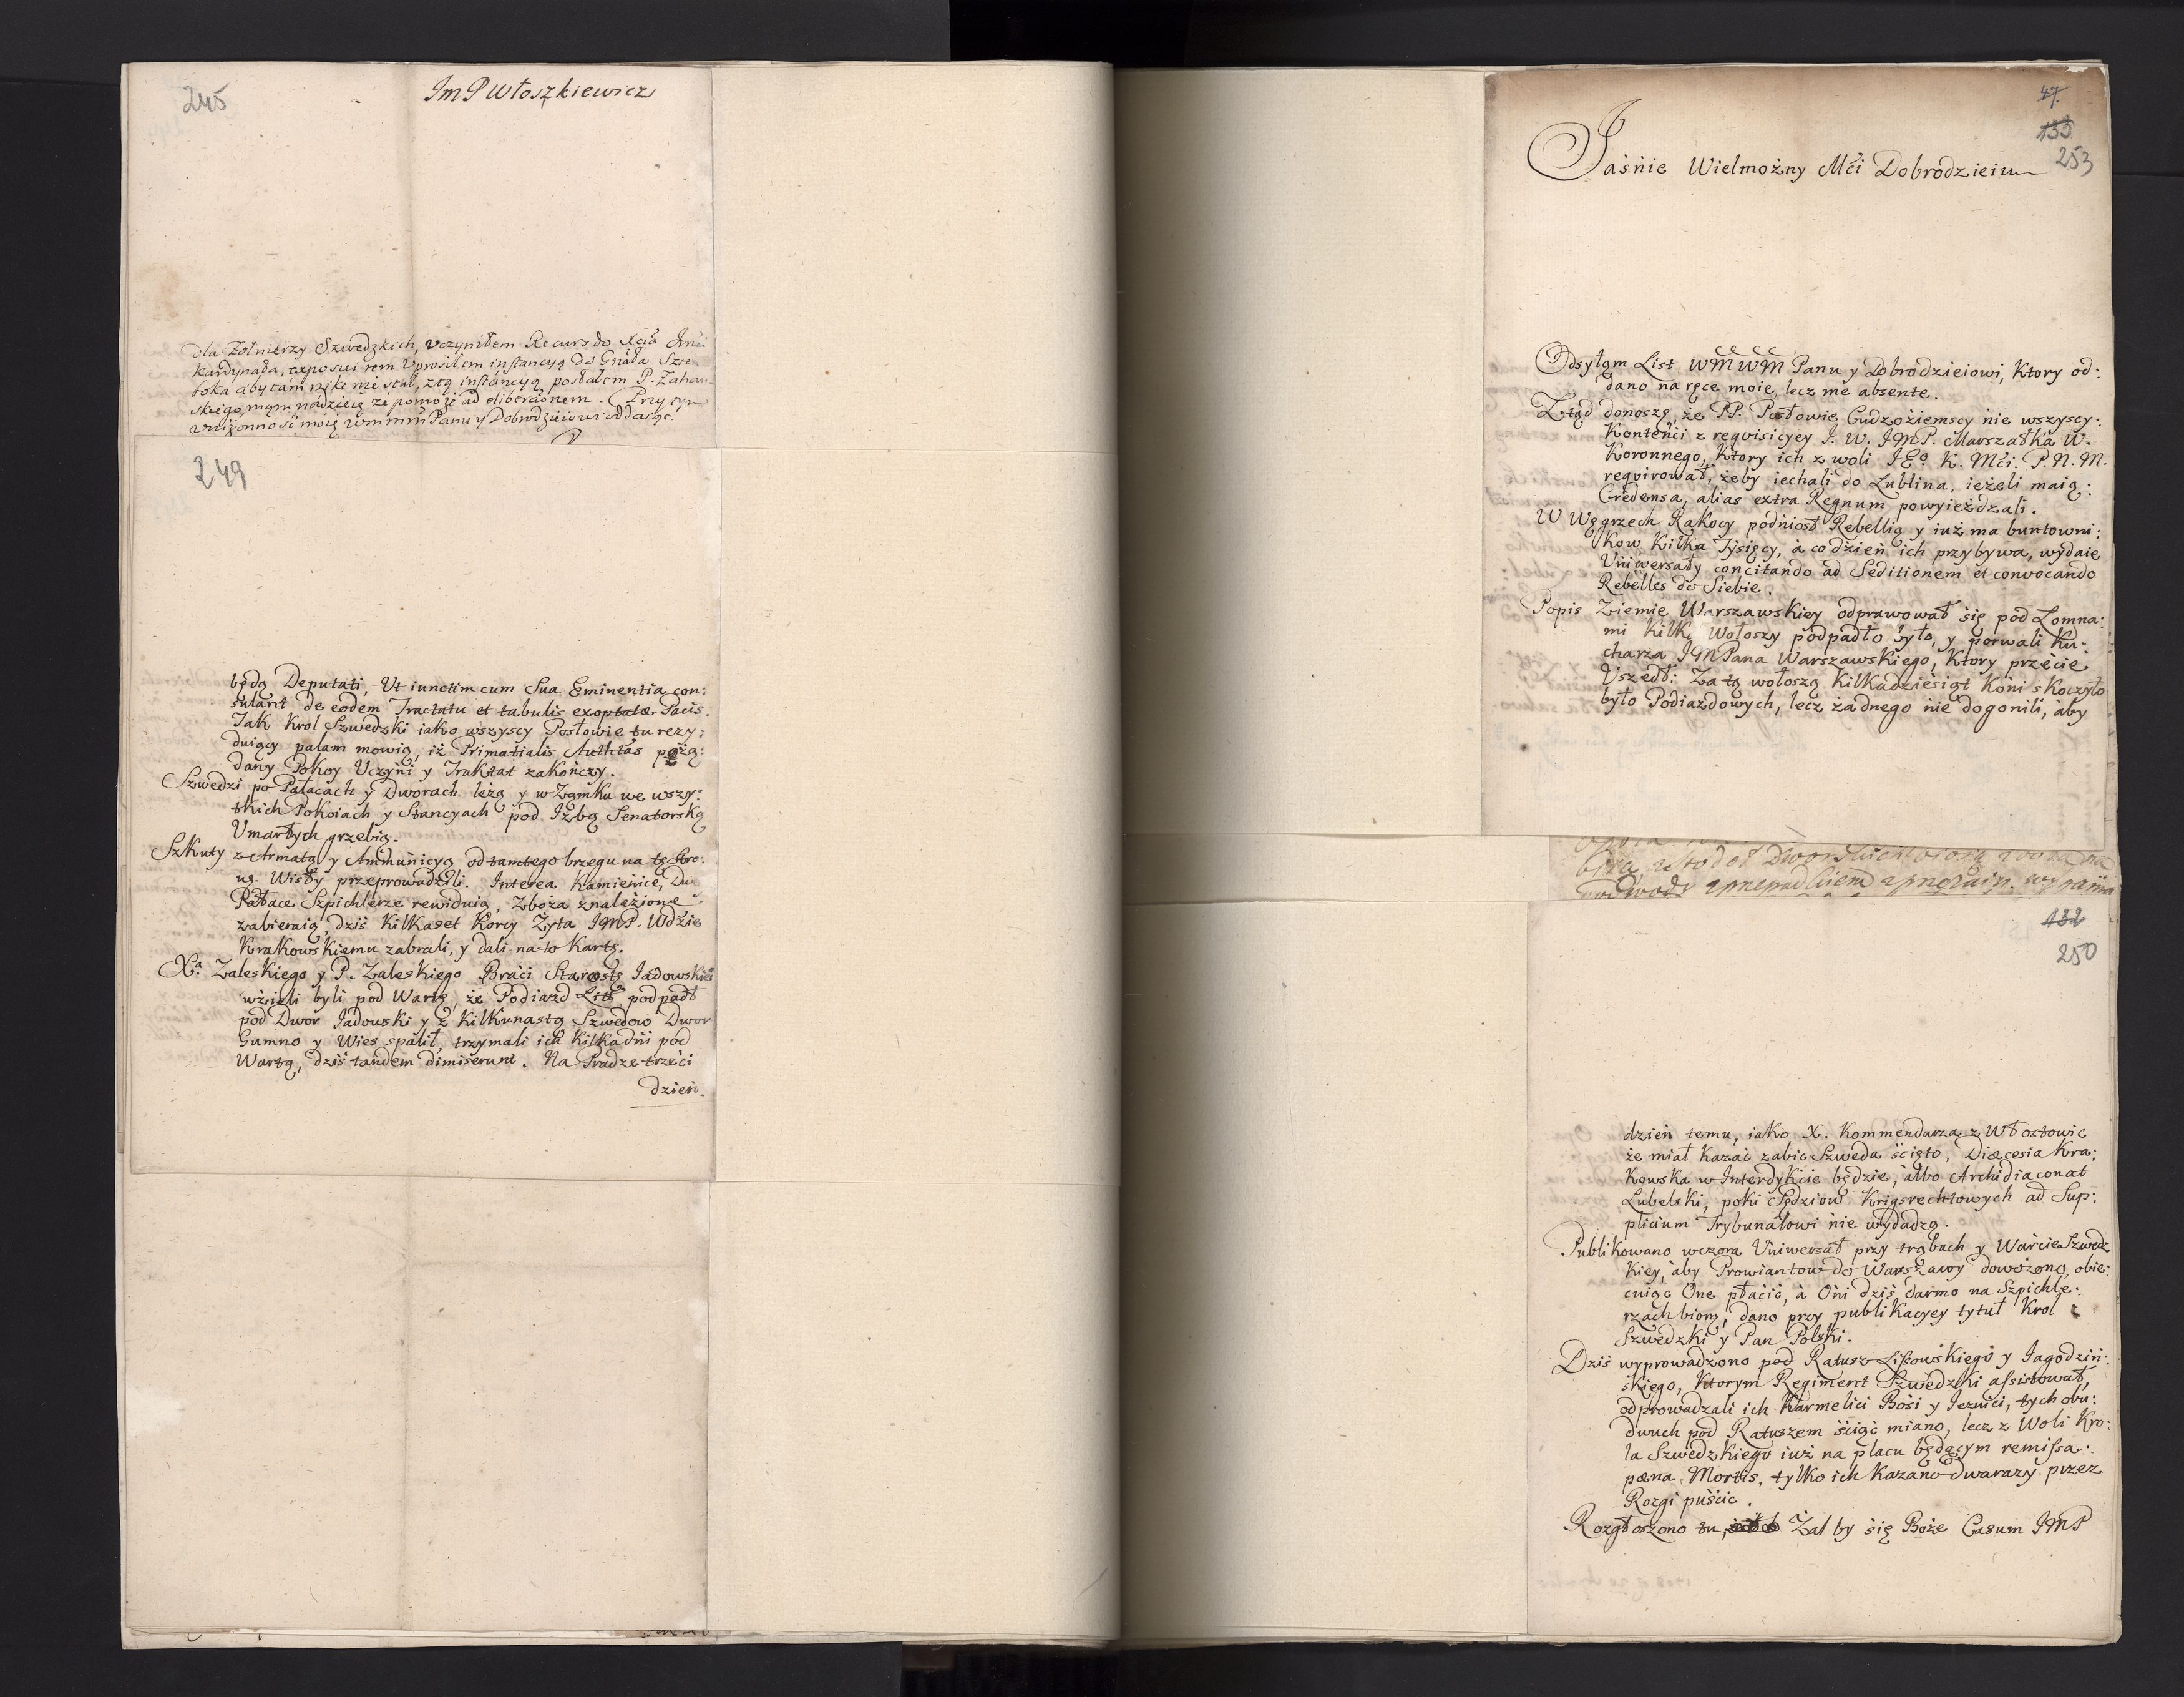 245
Im P Włoszkiewicz
dla Zołnierzy Szwedzkich, Uczyniłem Recurs do Xcia Imći
Kardynała, exposui rem Uprosiłem instancyą do Gńała Szte
boka aby tam nikt nie stał, z tą instancyą posłałem P. Zahor
skiego, mąm nadzieię że pomoże ad
uniżonność moię WMM Panu y Dobrodzieiowi oddaiąc.
249
będą Deputati, Ut iunctim cum Sua Eminentia con:
sulant de eodem Tractatu et tabulis exoptatæ Pacis.
Jak Krol Szwedzki iako wszyscy Posłowie tu rezy:
duiący palam mowią, iż Primatialis Autthas pożą:
dany Pokoy Uczyni y Traktat zakończy.
Szwedzi po Pałacach y Dworach leżą y w Zamku we wszy:
tkich Pokoiach y Stancyach pod Izbą Senatorską
Umarłych grzebią.
Szkuty z Armatą y Ammunicyą od tamtego brzegu na tę stro:
nę Wisły przeprowadzili. Interea Kamienice, Dw
Pałace Szpichlerze rewiduią, Zboża znaleźione
zabieraią, dziś kilkaset Korcy Żyta IMP. Wdzie
Krakowskiemu zabrali, y dali na to Kartę.
Xa. Zaleskiego y P. Zaleskiego Braci Starostę Jadowskie
wzieli byli pod Wartę, że Podiazd Litt podpadł
pod Dwor Jadowski y z Kilkunastą Szwedow Dwor
Gumno y Wies spalił, trzymali ich kilka dni pod
Wartą, dziś tandem dimiserunt. Na Pradze trzeci
dzien.
47.
133
253
Jaśnie Wielmożny Mći Dobrodzieiu
Odsyłąm List WMWM Panu y Dobrodzieiowi, Ktory od:
dano na ręce moie, lecz me absente.
Ztąd donoszę, że PP. Posłowie Cudzoźiemscy nie wszyscy:
Kontenći z requisicyey J. W. IMP. Marszałka W.
Koronnego, Ktory ich z woli IEo K. Mći. P. N. M.
requirował, żeby iechali do Lublina, ieżeli maią:
Credensa, alias extra Regnum powyieżdzali.
W Węgrzech Rakocy podniosł Rebellią y iuż ma buntowni:
Kow Kilka Tysięcy, à co dzień ich przybywa, wydaie
Uniwersały concitando ad Seditionem et convocando
Rebelles do Siebie.
Popis Ziemie Warszawskiey odprawował się pod Łomna:
mi Kilk Wołoszy podpadło było, y porwali Ku:
charza IMPana Warszawskiego, Ktory przećie
Uszedł: Za tą wołoszą Kilkadziesiąt Koni skoczyło
było Podiazdowych, lecz żadnego nie dogonili, aby
132
250
dzień temu, iako X. Kommendarza z Włostowic
że miał Kazać zabić Szweda ścięto, Diæcesia Kra:
Kowska w Interdykcie będzie, albo Archidiaconat
Lubelski, poki Sędziow Krigsrechtowych ad Sup:
plicium Trybunałowi nie wydadzą.
Publikowano wczora Uniwersał przy trąbach y Warcie Szwedz
Kiey, aby Prowiantow do Warszawy dowożono, obie:
cuiąc One płaćić, à Oni dziś darmo na Szpichle:
rzach biorą, dano przy publikacyey tytuł Krol
Szwedzki y Pan Polski.
Dziś wyprowadzono pod Ratusz Lissowskiego y Jagodziń:
skiego, Ktorym Regiment Szwedzki assistował,
odprowadzali ich Karmelici Bosi y Iezuici, tych obu:
dwuch pod Ratuszem śćiąć miano, lecz z Woli Kro:
la Szwedzkiego iuż na placu będącym remissa:
pæna Mortis, tylko ich Kazano dwarazy przez
Rozgi puśćić.
Rozgłoszono tu, Zal by się Boże Casum IMP